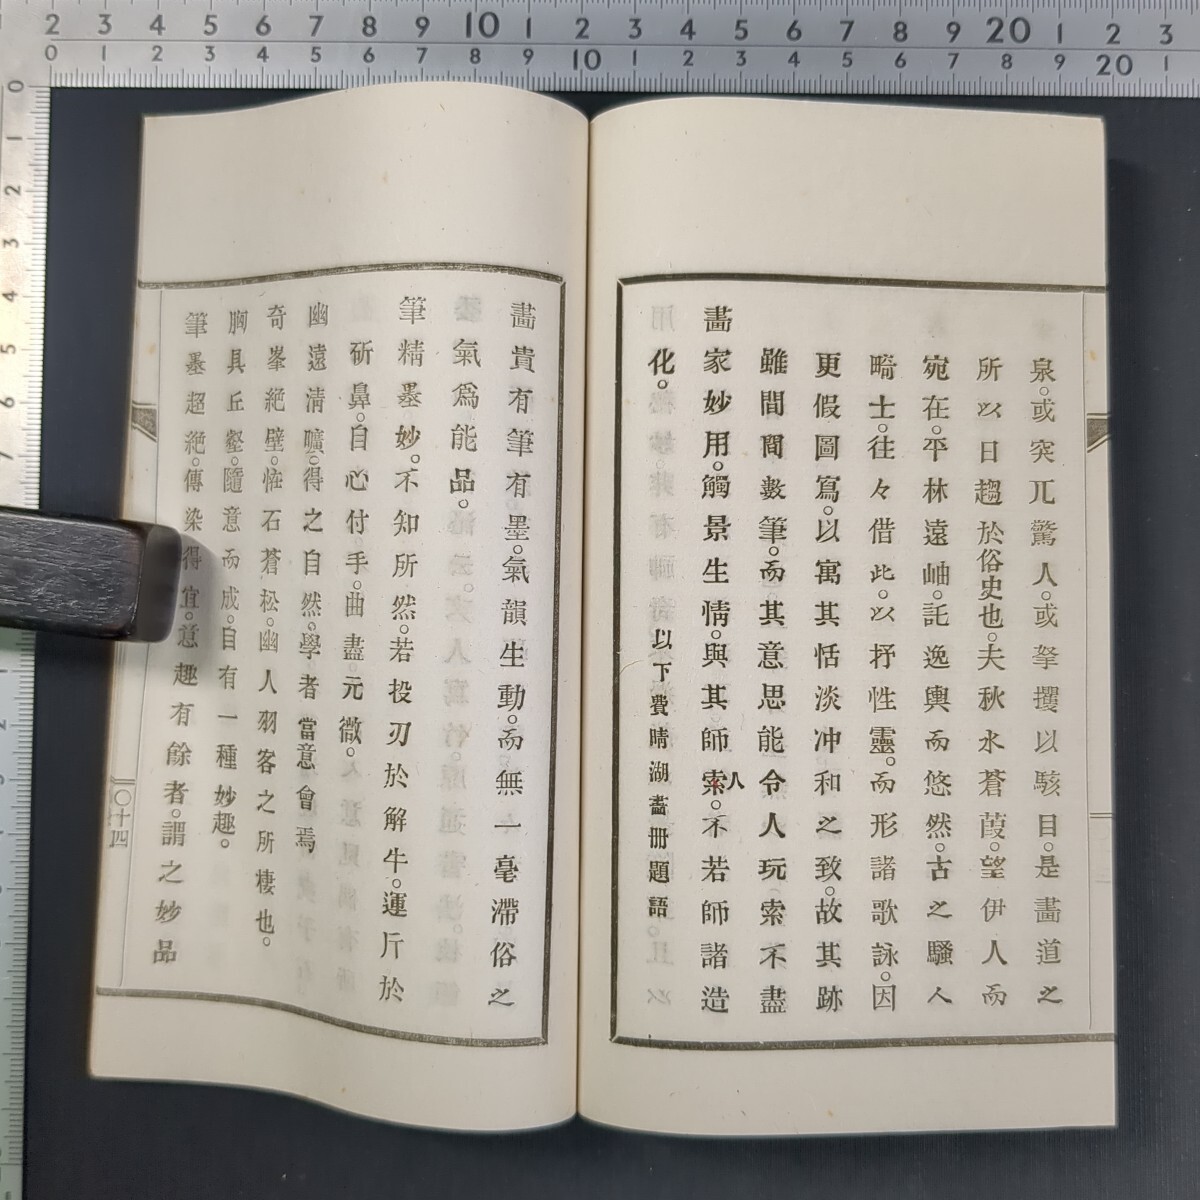 泉。或突兀驚人。或拏攫以駭目。是畫道之
所以日趨於俗史也。夫秋水蒼葭。望伊人而
宛在。平林遠岫。託逸輿而悠然。古之騷人
畸士。往々借此。以抒性靈。而形諸歌詠。因
更假圖寫。以寓其恬淡冲和之致。故其跡
雖間閒數筆。而其意思能令人玩索不盡
畫家妙用。觸景生情。與其師索。不若師諸造
人
化。以下費晴湖畫册題語。
畫貴有筆有墨。氣韻生動。而無一毫滯俗之
氣爲能品。
筆精墨妙。不知所然。若投刃於解牛。運斤於
斫鼻。自心付手。曲盡元微。
幽遠清曠。得之自然。學者當意會焉
奇峯絶壁。恠石蒼松。幽人羽客之所棲也。
胸具丘壑。隨意而成。自有一種妙趣。
筆墨超絶。傳染得宜。意趣有餘者。謂之妙品
〇十四
2 3 4 5 6 7 8 9 10 1 2 3 4 5 6 7 8 9 20 1 2 3
0 1 2 3 4 5 6 7 8 9 10 1 2 3 4 5 6 7 8 9 20 1
0 1 2 3 4 5 6 7